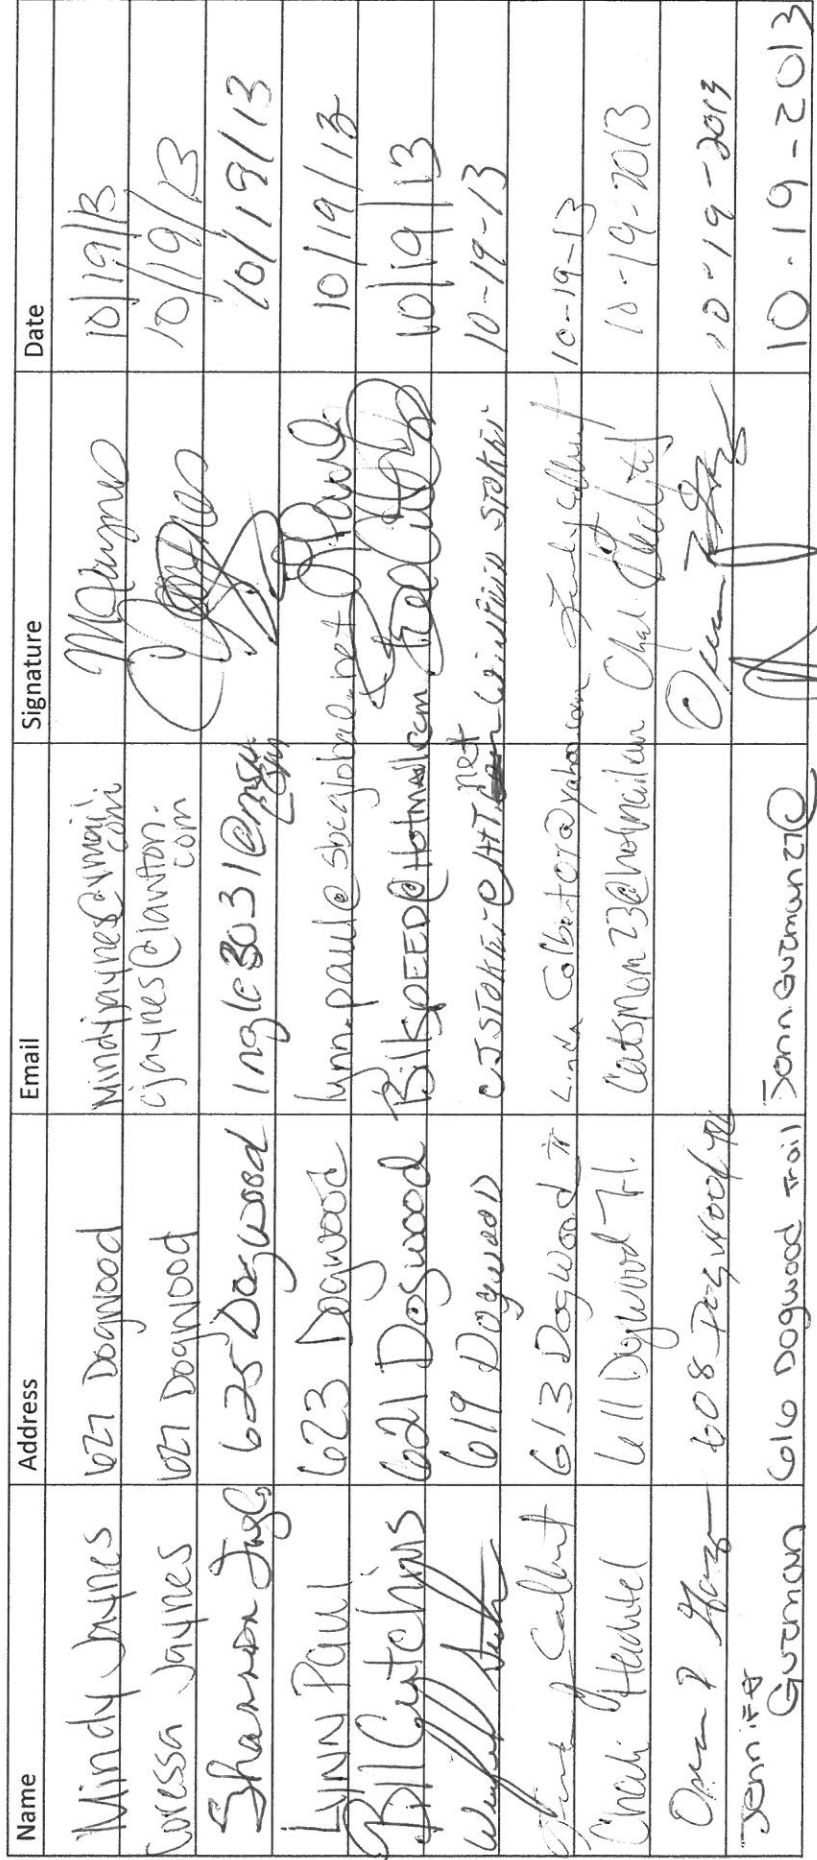 Name Address Email Signature Date
Mindy Jaynes 627 Dogwood Mindyjaynes@ymail.com MJaynes 10/19/13
Coressa Jaynes 627 Dogwood cjaynes@lawton.com 10/19/13
Shannon Ingle 625 Dogwood Ingle3031@msn.com 10/19/13
LYNN PAUL 623 Dogwood lynn.paul@sbcglobal.net L Paul 10/19/13
Bill Cutchins 621 Dogwood BillSPEED@Hotmail.com 10/19/13
619 Dogwood CJSTOKER@ATT.net WINFIELD STOKER 10-19-13
Linda Colbert 613 Dogwood Tr Linda Colbert07@yahoo.com Linda Colbert 10-19-13
Chadi Hechtel 611 Dogwood Trl. Catsmom23@hotmail.com Chadi Hechtel 10-19-2013
608 Dogwood 10-19-2013
Jennifer Guzman 616 Dogwood Trail JennGuzman27@ 10-19-2013